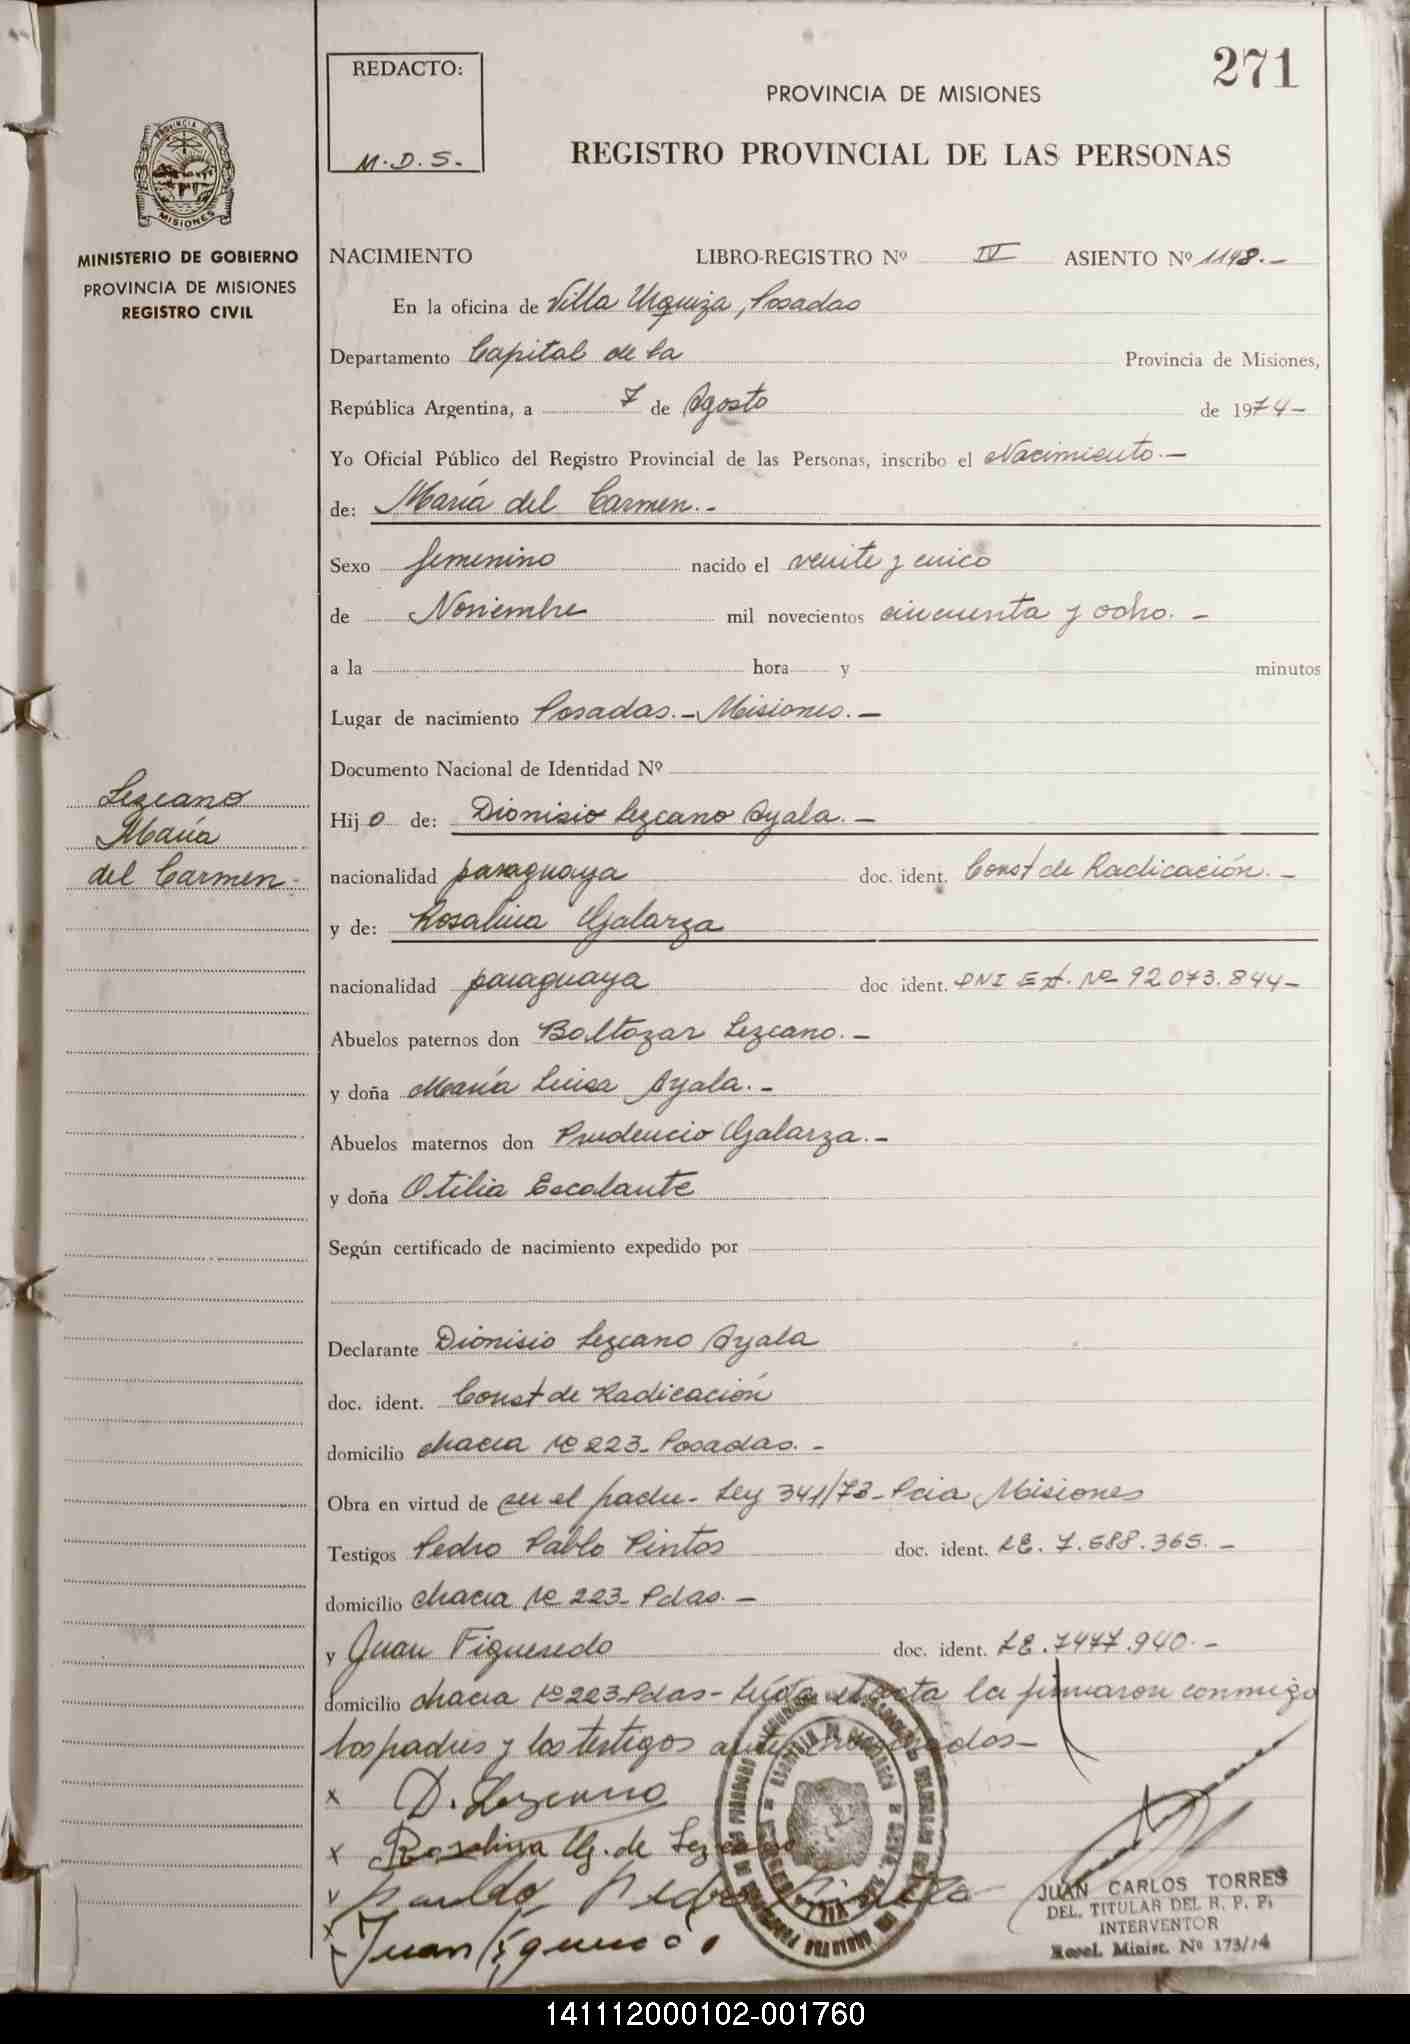 271
REDACTO:
M. D. S.-
PROVINCIA DE MISIONES
REGISTRO PROVINCIAL DE LAS PERSONAS
MISIONES
MINISTERIO DE GOBIERNO
PROVINCIA DE MISIONES
REGISTRO CIVIL
NACIMIENTO LIBRO-REGISTRO Nº IV ASIENTO Nº 1198.-
En la oficina de Villa Urquiza, Posadas
Departamento Capital de la Provincia de Misiones,
República Argentina, a 7 de Agosto de 1974-
Yo Oficial Público del Registro Provincial de las Personas, inscribo el Nacimiento.-
de: María del Carmen.-
Sexo femenino nacido el veinte y cinco
de Noviembre mil novecientos cincuenta y ocho.-
a la hora y minutos
Lugar de nacimiento Posadas.- Misiones.-
Documento Nacional de Identidad Nº
Lezcano
María
del Carmen-
Hijo de: Dionisio Lezcano Ayala.-
nacionalidad paraguaya doc. ident. Const de Radicación.-
y de: Rosalina Galarza
nacionalidad paraguaya doc. ident. DNI Ext. Nº 92.073.844-
Abuelos paternos don Baltazar Lezcano.-
y doña María Luisa Ayala.-
Abuelos maternos don Prudencio Galarza.-
y doña Otilia Escalante
Según certificado de nacimiento expedido por
Declarante Dionisio Lezcano Ayala
doc. ident. Const de Radicación
domicilio chacra Nº 223- Posadas.-
Obra en virtud de ser el padre- Ley 341/73- Pcia Misiones
Testigos Pedro Pablo Pintos doc. ident. LE. 7.588.365.-
domicilio chacra Nº 223- Pdas.-
y Juan Figueredo doc. ident. LE. 7477.940.-
domicilio chacra Nº 223-Pdas- Leída el acta la firmaron conmigo
los padres y los testigos antes nombrados-
x D. Lezcano
x Rosalina G. de Lezcano
Pedro
x Juan Figueredo
JUAN CARLOS TORRES
DEL. TITULAR DEL R. P. P.
INTERVENTOR
Resol. Minist. Nº 173/74
141112000102-001760